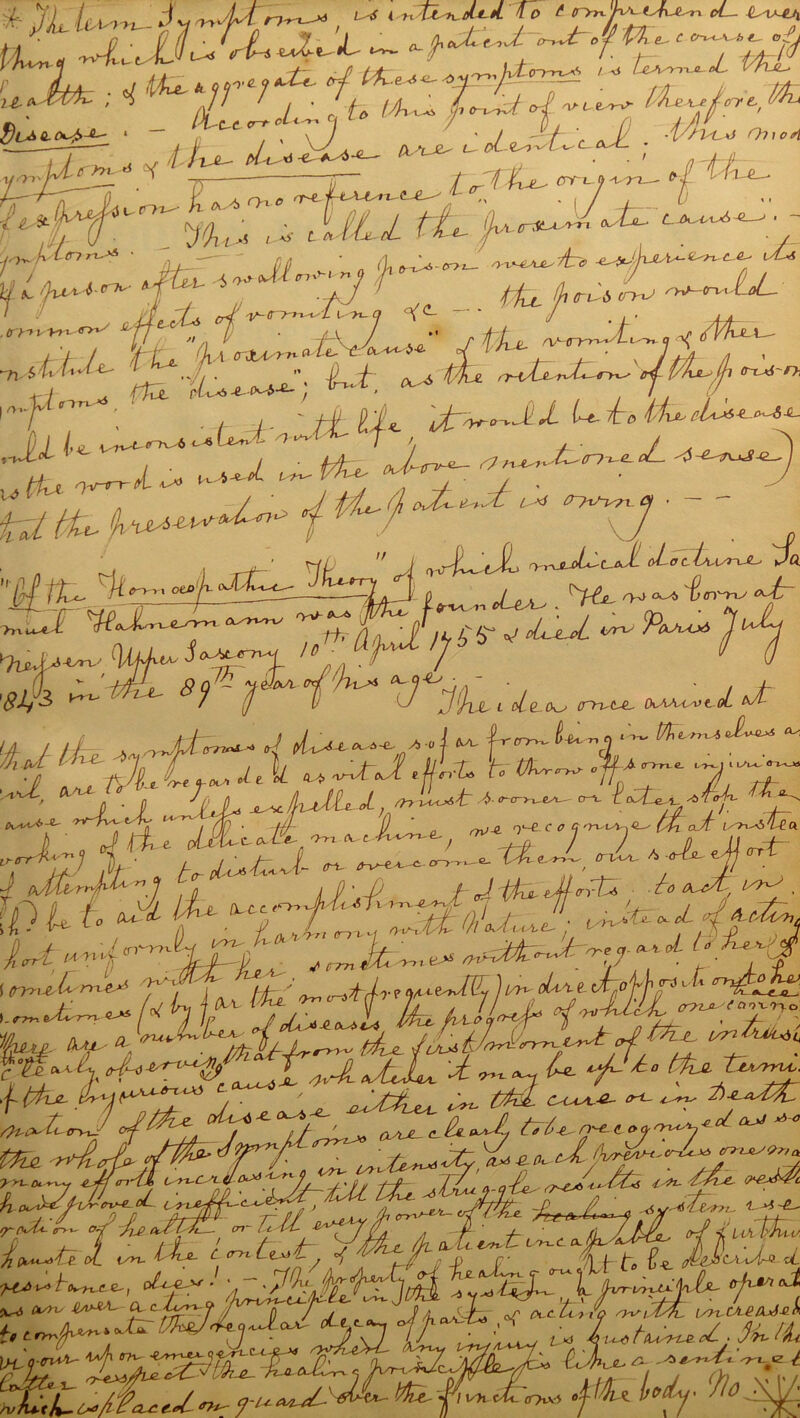 * The term Symptoms, is intended to comprehend ever
thing which is observed in a patient out of the course of
health; & the aggregate of these symptoms is termed the
Disease. - According to this point of view therefore, the
ymptoms & the disease are identical; this mod
f expression has no reference to the origin of the
ymptoms. - This is called the "proximate cause". -
If a person after swallowing poison were to experience its
ommon effects of vomiting &c -. the poison would
nstitute the "proximate cause" & the vomiting & other
mptoms, the "disease"; but, as the retention of the poison
uld be inconsistent with life, it would be to the disease
as the word is used in the above mentioned sense)
hat the preservation of the patient is owing. - -
"Of the Homœopathic Theory" of which medical doctrine Sa
muel Hahnemann was the founder. He was born at
Meissen, Upper Saxony 10th. April 1755 & died in Paris July
1843 in the 89th year of his age. -
The idea once arrived at
that the symptoms of disease, so far from being in themselves a
vil, are to be regarded as vital efforts to throw off some injurious
ause which unless expelled, must sooner or later stop the
working of the delicate machine, we recognize that instea
f attempting to disturb or overcome them, our sole effort
shd be to aid the accomplishment of the efforts, to act, in
hort uniformly in harmony with Nature; instead of acting
sometimes with her, sometimes without regard to her, &
sometimes (& by far the most frequently) in direct opposition to he
There are a number of diseases, the progress of which one canno trace
clearly without observing that from the first moment of the intrusi
f the injurious cause, whatever it may be up to the termi
nation of the disease, either in the cure or in Death
the whole of the Symptoms are clearly to be recognized as so
many efforts increasing in intensity, as each previous one ma
have proved inefficient, till the struggle results in the resto
ration of health, or till every power of the healing system is e
hausted in the contest, & the patient incapable of further
resistance, dies! - The property of healing ought to be described
as an ever acting principle in the system, a principle operat
to compensate the regular decay of parts, & acting with increased
vigour upon emergencies when any injury is sustained. In the
latter respect the healing principle is like a sentinel
which is placed on guard over the functions of the body. No